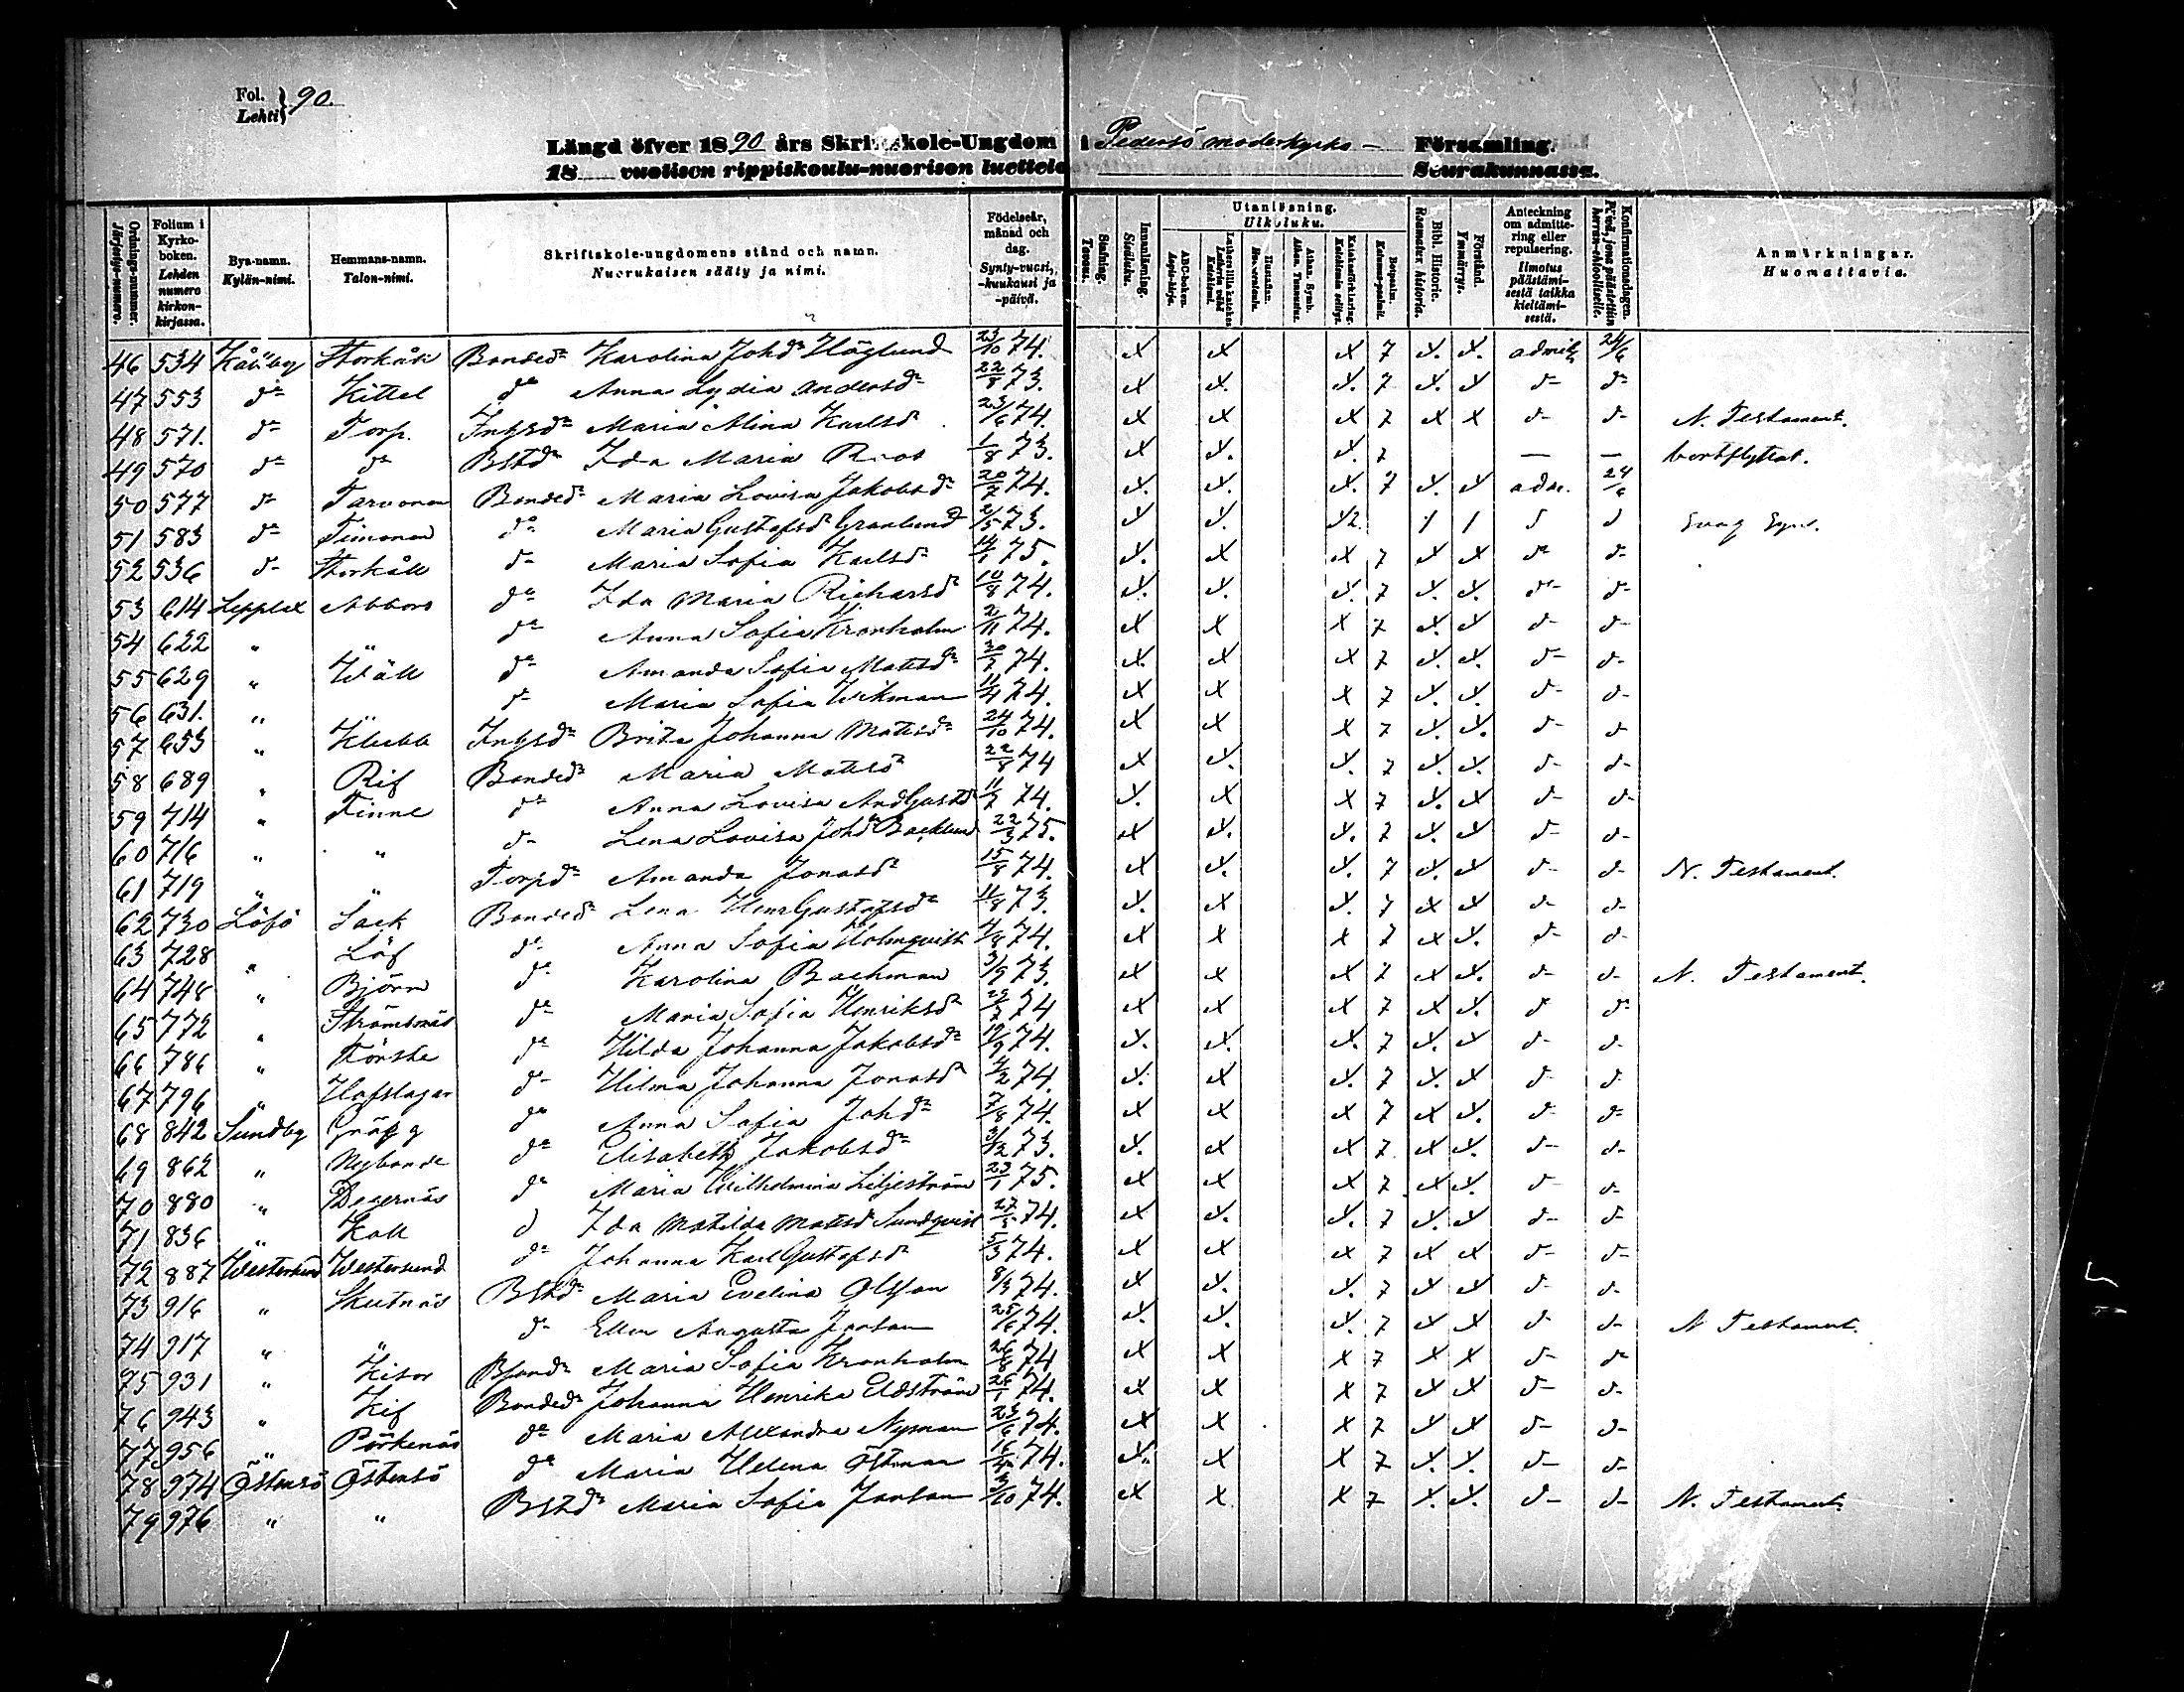 Fol. Lehti } 90.
Längd öfver 1890 års Skriftskole-Ungdom i Pedersö moderkyrko- Församling.
18 vuotison rippiskoulu-nuorison luettelo Seurakunnassa.
Ordnings-nummer. Järjestys-numero. Folium i Kyrko-boken. Lehden numero kirkon-kirjassa. Bya-namn. Kylän-nimi. Hemmans-namn. Talon-nimi. Skriftskole-ungdomens stånd och namn. Nuorukaisen sääty ja nimi. Födelseår, månad och dag. Synty-vuosi, -kuukausi ja -päivä. Stafning. Tavaus. Innanläsning. Sisäluku. Utanläsning. Ulkoluku. ABC-boken. Aapis-kirja. Hustaflan. Huoneentaulu. Athan. Symb. Athan. Tunnustus. Katekesförklaring. Katekismin selitys. Botpsalm. Katumus-psalmit. Bibl. Historie. Raamatun historia. Förstånd. Ymmärrys. Anteckning om admittering eller repulsering. Ilmotus päästämisestä taikka kieltämisestä. Konfirmationsdagen. Anmärkningar. Huomattavia.
46 534 Kållby Storkåll Bonded:r Karolina Johd:r Höglund 23/10 74. x x x 7 x. x. admitt 24/6
47 553 d:o Kittel d:o Anna Lydia Andersd:r 22/8 73. x x. x. 7 x. x d:o d:o
48 571. d:o Torp. Inhysd:r Maria Alina Karlsd:r 23/6 74. x x x 7 x x d:o d:o N. Testament.
49 570 d:o d:o Bstd:r Ida Maria Roos 1/8 73. x x. x. 7 — — bortflyttat.
50 577 d:o Tarvonen Bonded:r Maria Lovisa Jakobsd:r 20/7 74. x. x. x. 7 x. x adm. 24/6
51 583 d:o Timonen d:o Maria Gustafsd:r Granlund 2/5 73. x x. d:o d:o
52 536 d:o Storkåll d:o Maria Sofia Karlsd:r 14/1 75. x. x x 7 x x d:o d:o
53 614 Lepplax Abbors d:o Ida Maria Richarsd:r 10/8 74. x. x. x. 7 x. x. d:o d:o
54 622 " " d:o Anna Sofia Kronholm 2/11 74. x x x 7 x. x d:o d:o
55 629 " Wäll d:o Amanda Sofia Mattsd:r 30/7 74. x. x x 7 x. x. d:o d:o
56 631. " " d:o Maria Sofia Wikman 11/4 74. x x x 7 x. x. d:o d:o
57 653 " Klubb Inhysd:r Brita Johanna Mattsd:r 24/10 74. x x x 7 x. x. d:o d:o
58 689 " Rif Bonded:r Maria Mattsd:r 22/8 74 x x. x. 7 x. x. d:o d:o
59 714 " Finne d:o Anna Lovisa AndGustd:r 11/7 74. x. x x 7 x. x d:o d:o
60 716 " " d:o Lena Lovisa Johd:r Backlund 22/3 75. x x. x. 7 x. x d:o d:o
61 719 " " Torpd:r Amanda Jonasd:r 15/8 74. x x. x. 7 x. x d:o d:o N. Testament.
62 730 Löfö Sack Bonded:r Lena HenrGustafsd:r 11/8 73. x. x x. 7 x x d:o d:o
63 728 " Löf d:o Anna Sofia Holmqvist 4/8 74. x x x 7 x x. d:o d:o
64 748 " Björn d:o Karolina Backman 3/9 73. x x x 7 x x. d:o d:o N. Testament.
65 772 " Strömsnäs d:o Maria Sofia Henriksd:r 22/7 74 x x x 7 x x. d:o d:o
66 786 " Förste d:o Hilda Johanna Jakobsd:r 19/9 74. x. x. x. 7 x. x d:o d:o
67 796 " Hofslagar d:o Hilma Johanna Jonasd:r 4/2 74. x. x x. 7 x. x d:o d:o
68 842 Sundby Grägg d:o Anna Sofia Johd:r 7/8 74. x x x 7 x x. d:o d:o
69 862 " Nybonde d:o Elisabeth Jakobsd:r 3/12 73. x. x x 7 x. x. d:o d:o
70 880 " Degernäs d:o Maria Wilhelmina Liljeström 23/1 75. x x x 7 x x. d:o d:o
71 836 " Koll d:o Ida Matilda Mattsd Sundqvist 27/8 74. x x. x. 7 x. x d:o d:o
72 887 Westersund Westersund d:o Johanna KarlGustafsd:r 5/3 74. x x x 7 x x d:o d:o
73 916 " Skutnäs Bstd:r Maria Evelina Olsson 8/3 74. x x. x. 7 x x d:o d:o
74 917 " " d:o Ellen Augusta Jonson 25/6 74. x. x. x. 7 x x d:o d:o N Testament.
75 931 " Kisor Maria Sofia Kronholm 26/6 74 x x x 7 x x d:o d:o
76 943 " Kif Bonded:r Johanna Henrika Edström 26/1 74. x x x 7 x x d:o d:o
77 956 " Pörkenäs d:o Maria Alexandra Nyman 23/6 74. x x x 7 x x d:o d:o
78 974 Östensö Östensö d:o Maria Helena Östman 74. x. x x 7 x. x. d:o d:o
79 976 " " Bstd:r Maria Sofia Jonson 3/10 74. x x x 7 x. x. d:o d:o N. Testament.